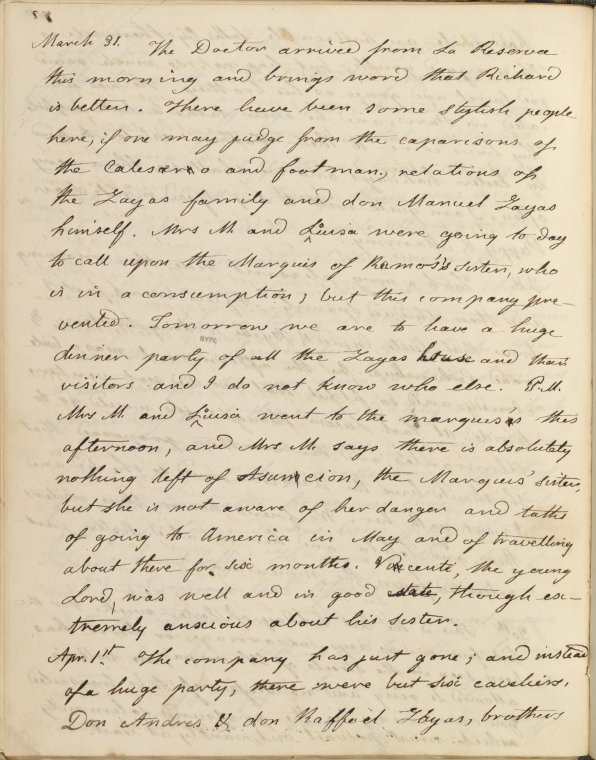 March 31. The Doctor arrived from La Reserva
this morning and brings word that Richard
is better. There have been some stylish people
here, if one may judge from the caparisons of
the Calesero and footman, relations of
the Zayas family and don Manuel Zayas
himself. Mrs M. and Luisa were going to day
to call upon the Marquis of Ramos's sister, who
is in a consumption; but this company pre-
vented. Tomorrow we are to have a huge
dinner party of all the Zayas house and their
visitors and I do not know who else. P.M.
Mrs M. and Luisa went to the marquis's this
afternoon, and Mrs M. says there is absolutely
nothing left of Asuncion, the Marquis' sister,
but she is not aware of her danger and talks
of going to America in May and of travelling
about there for six months. Vicente, the young
Lord, was well and in good state, though ex-
tremely anxious about his sister.
Apr. 1st. The company has just gone; and instead
of a huge party, there were but six cavaliers,
Don Andres & don Raffael Zayas, brothers